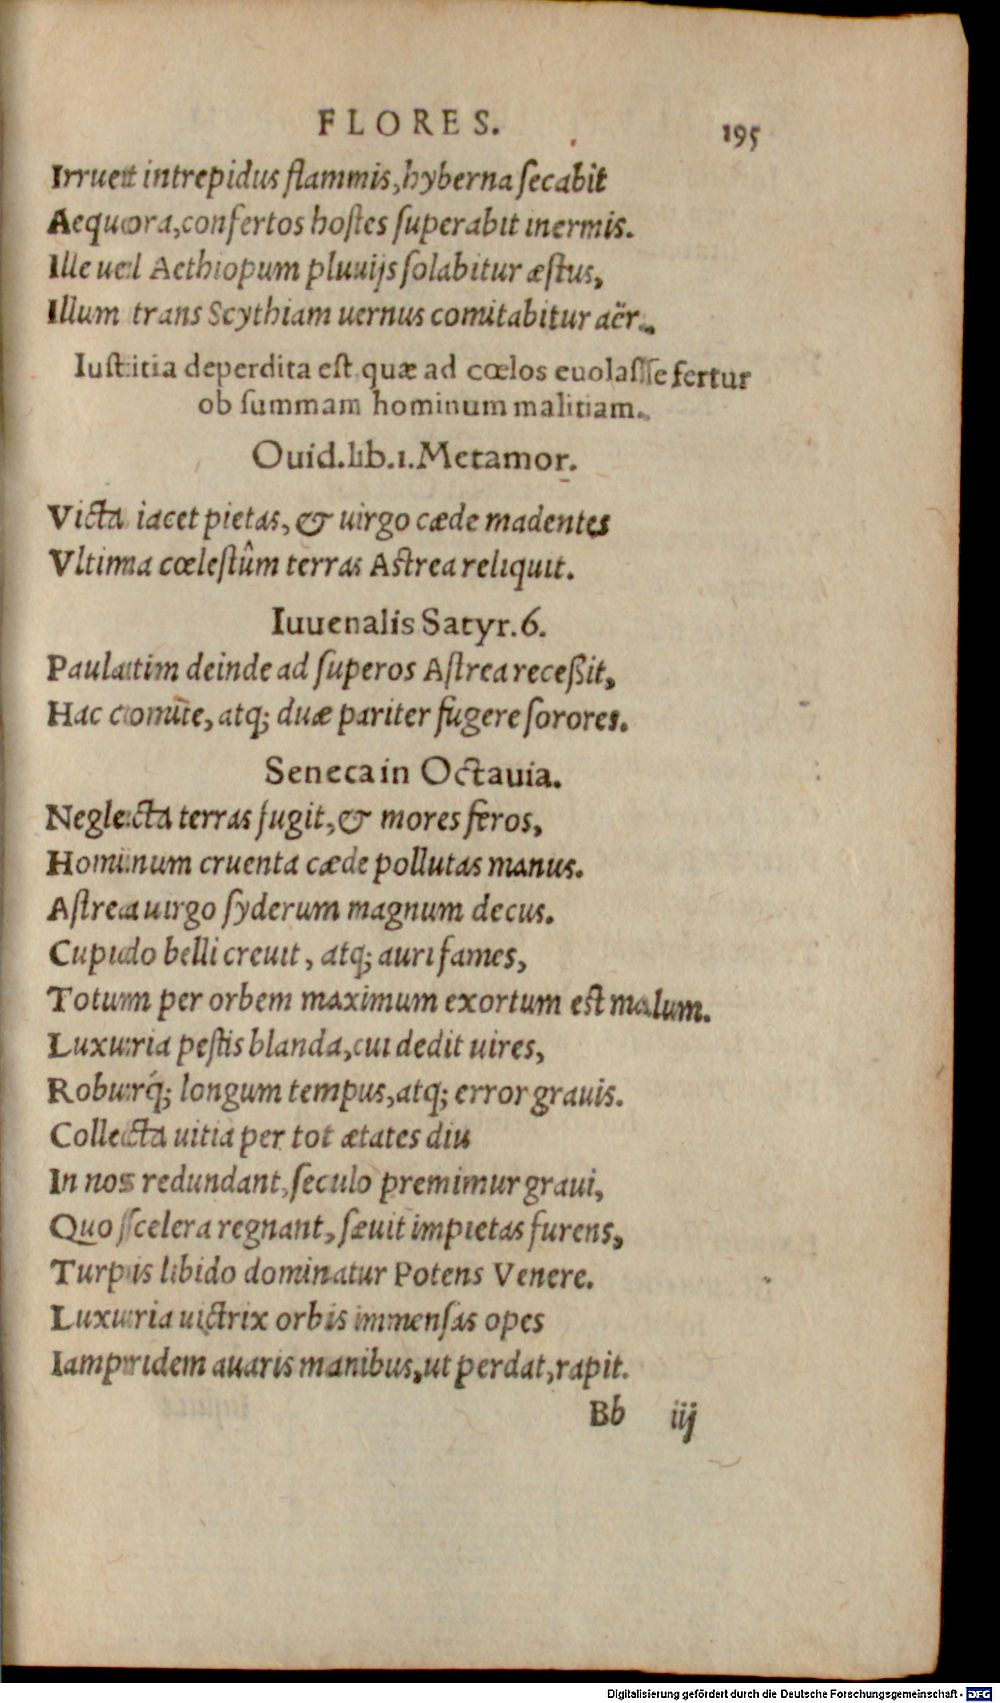 FLORES. 195
Irruet intrepidus flammis, hyberna secabit
Aequora, confertos hostes superabit inermis.
Ille uel Aethiopum pluuijs solabitur æstus,
Illum trans Scythiam uernus comitabitur aër.
Iustitia deperdita est quæ ad cœlos euolasse fertur
ob summam hominum malitiam.
Ouid.lib.1.Metamor.
Victa iacet pietas, & uirgo cæde madentes
Vltima cœlestûm terras Astrea reliquit.
Iuuenalis Satyr.6.
Paulatim deinde ad superos Astrea receßit,
Hac comite, atq; duæ pariter fugere sorores.
Seneca in Octauia.
Neglecta terras fugit, & mores feros,
Hominum cruenta cæde pollutas manus.
Astrea uirgo syderum magnum decus.
Cupido belli creuit, atq; auri fames,
Totum per orbem maximum exortum est malum.
Luxuria pestis blanda, cui dedit uires,
Roburq́; longum tempus, atq; error grauis.
Collecta uitia per tot ætates diu
In nos redundant, seculo premimur graui,
Quo scelera regnant, sæuit impietas furens,
Turpis libido dominatur Potens Venere.
Luxuria uictrix orbis immensas opes
Iampridem auaris manibus, ut perdat, rapit.
Bb iij
Digitalisierung gefördert durch die Deutsche Forschungsgemeinschaft - DFG